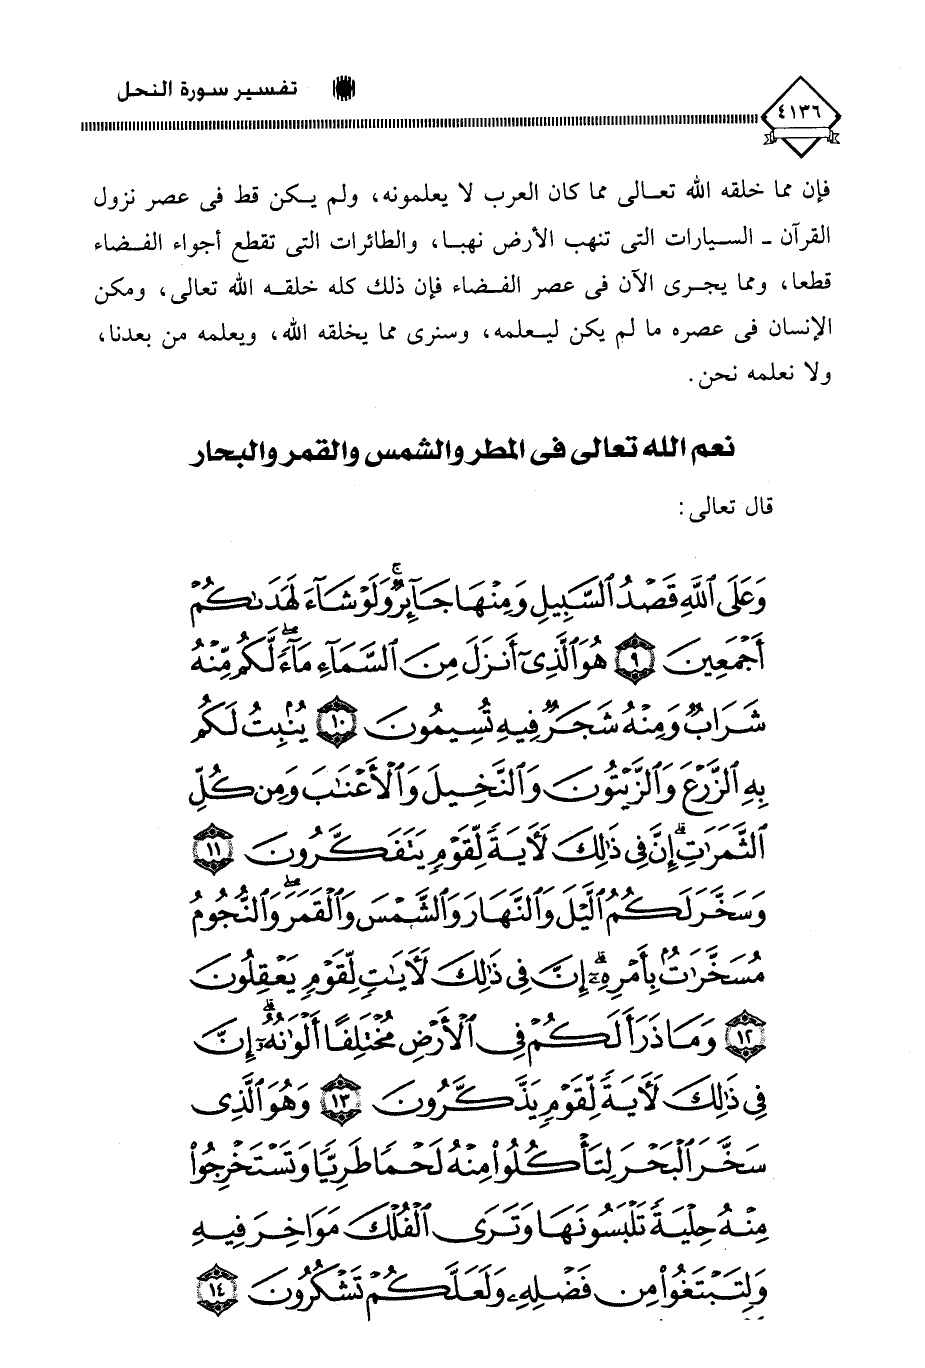 تفسير سورة النحل
٤١٣٦
فإن مما خلقه الله تعالى مما كان العرب لا يعلمونه، ولم يكن قط فى عصر نزول
القرآن ـ السيارات التى تنهب الأرض نهبا، والطائرات التى تقطع أجواء الفضاء
قطعا، ومما يجرى الآن فى عصر الفضاء فإن ذلك كله خلقه الله تعالى، ومكن
الإنسان فى عصره ما لم يكن ليعلمه، وسنرى مما يخلقه الله، ويعلمه من بعدنا،
ولا نعلمه نحن.
نعم الله تعالى فى المطر والشمس والقمر والبحار
قال تعالى:
وَعَلَى ٱللَّهِ قَصْدُ ٱلسَّبِيلِ وَمِنْهَا جَآئِرٌ ۚ وَلَوْ شَآءَ لَهَدَىٰكُمْ
أَجْمَعِينَ ٩ هُوَ ٱلَّذِىٓ أَنزَلَ مِنَ ٱلسَّمَآءِ مَآءً ۖ لَّكُم مِّنْهُ
شَرَابٌ وَمِنْهُ شَجَرٌ فِيهِ تُسِيمُونَ ١٠ يُنۢبِتُ لَكُم
بِهِ ٱلزَّرْعَ وَٱلزَّيْتُونَ وَٱلنَّخِيلَ وَٱلْأَعْنَٰبَ وَمِن كُلِّ
ٱلثَّمَرَٰتِ ۗ إِنَّ فِى ذَٰلِكَ لَءَايَةً لِّقَوْمٍ يَتَفَكَّرُونَ ١١
وَسَخَّرَ لَكُمُ ٱلَّيْلَ وَٱلنَّهَارَ وَٱلشَّمْسَ وَٱلْقَمَرَ ۖ وَٱلنُّجُومُ
مُسَخَّرَٰتٌۢ بِأَمْرِهِۦٓ ۗ إِنَّ فِى ذَٰلِكَ لَءَايَٰتٍ لِّقَوْمٍ يَعْقِلُونَ
١٢ وَمَا ذَرَأَ لَكُمْ فِى ٱلْأَرْضِ مُخْتَلِفًا أَلْوَٰنُهُۥٓ ۗ إِنَّ
فِى ذَٰلِكَ لَءَايَةً لِّقَوْمٍ يَذَّكَّرُونَ ١٣ وَهُوَ ٱلَّذِى
سَخَّرَ ٱلْبَحْرَ لِتَأْكُلُوا۟ مِنْهُ لَحْمًا طَرِيًّا وَتَسْتَخْرِجُوا۟
مِنْهُ حِلْيَةً تَلْبَسُونَهَا وَتَرَى ٱلْفُلْكَ مَوَاخِرَ فِيهِ
وَلِتَبْتَغُوا۟ مِن فَضْلِهِۦ وَلَعَلَّكُمْ تَشْكُرُونَ ١٤